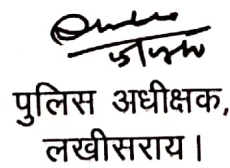 पुलिस अधीक्षक,
लखीसराय।